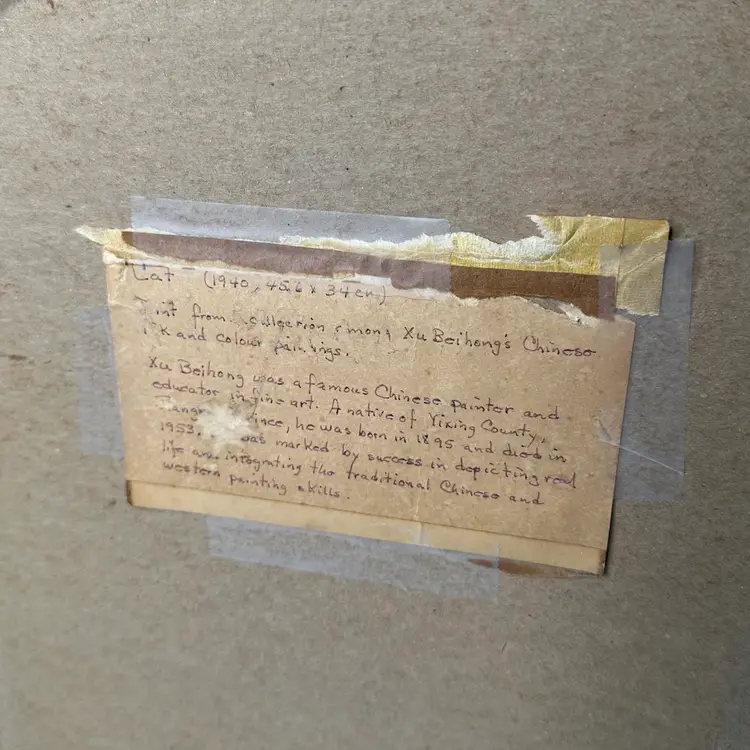 Cat - (1940, 45.6 x 34 cm)
from collection among Xu Beihong's Chinese
and colour paintings.
Xu Beihong was a famous Chinese painter and
educator in fine art. A native of Yixing County,
he was born in 1895 and died in
1953. was marked by success in depicting real
life and integrating the traditional Chinese and
western painting skills.